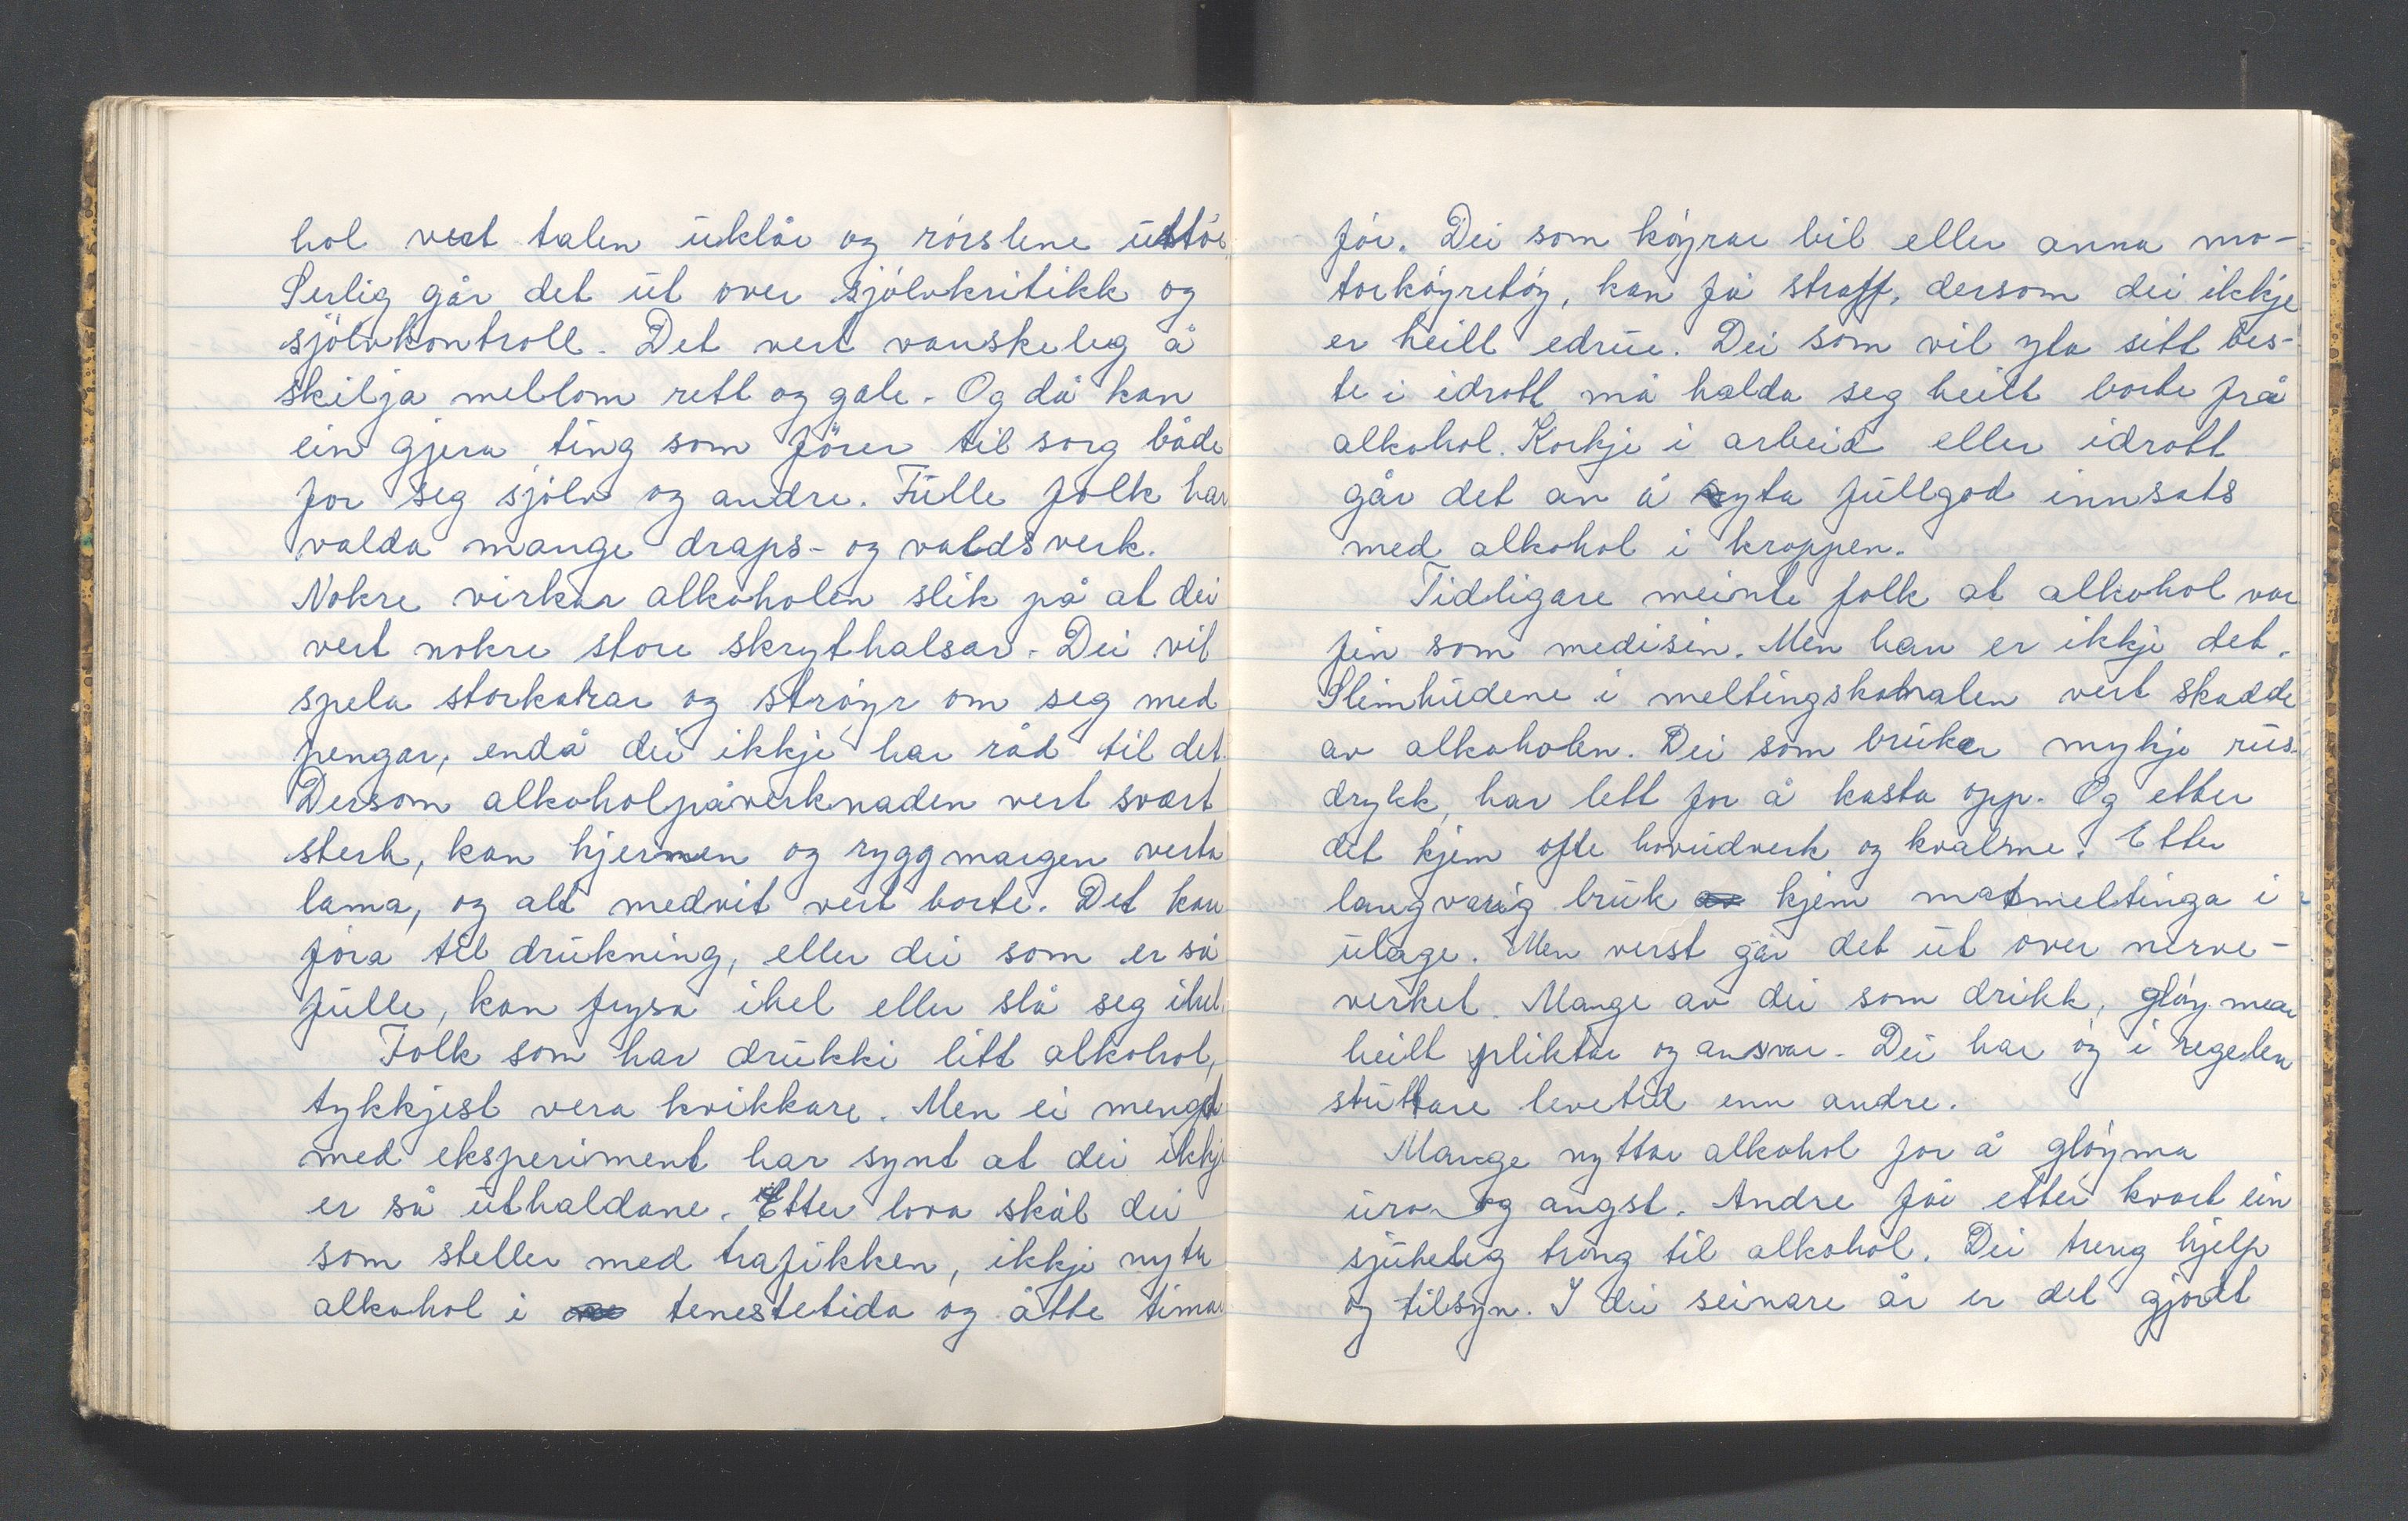 hol vert talen uklår og rørslene ustø
Serlig går det ut over sjølvkritikk og
sjølvkontroll. Det vert vanskeleg å
skilja mellom rett og gale. Og då kan
ein gjera ting som fører til sorg både
for seg sjølv og andre. Fulle folk har
valda mange draps- og valdsverk.
Nokre virkar alkoholen slik på at dei
vert nokre store skrythalsar. Dei vil
spela storkarar og strøyr om seg med
pengar, endå dei ikkje har råd til det.
Dersom alkoholpåverknaden vert svært
sterk, kan hjernen og ryggmargen verta
lama, og alt medvit vert borte. Det kan
føra til drukning, eller dei som er så
fulle, kan frysa ihel eller slå seg ihel.
Folk som har drukki litt alkohol,
tykkjest vera kvikkare. Men ei mengd
med eksperiment har synt at dei ikkje
er så uthaldane. Etter lova skal dei
som steller med trafikken, ikkje nyta
alkohol i tenestetida og åtte timar
før. Dei som køyrar bil eller anna mo-
torkøyretøy, kan få straff, dersom dei ikkje
er heilt edrue. Dei som vil yta sitt bes-
te i idrott må halda seg heilt borte frå
alkohol. Korkje i arbeid eller idrott
går det an å yta fullgod innsats
med alkohol i kroppen.
Tidligare meinte folk at alkohol var
fin som medisin. Men han er ikkje det.
Slimhudene i meltingskanalen vert skadde
av alkoholen. Dei som bruker mykje rus-
drykk, har lett for å kasta opp. Og etter
det kjem ofte hovudverk og kvalme. Etter
langvarig bruk kjem matmeltinga i
ulage. Men verst går det ut over nerve-
verket. Mange av dei som drikk, gløymar
heilt pliktar og ansvar. Dei har óg i regelen
stuttare levetid enn andre.
Mange nyttar alkohol for å gløyma
uro og angst. Andre får etter kvart ein
sjukelig trong til alkohol. Dei treng hjelp
og tilsyn. I dei seinare år er det gjordt